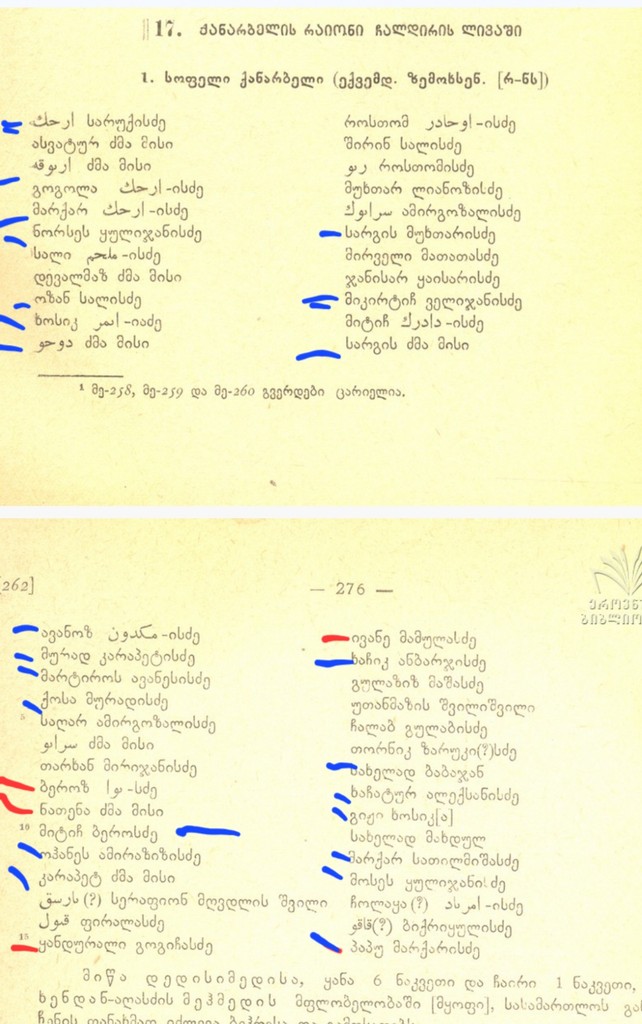 17. ქანარბელის რაიონი ჩალდირის ლივაში
1. სოფელი ქანარბელი (ექვემდ. ზემოხსენ. [რ-ნს])
ارحك სარუქისძე
ასვატურ ძმა მისი
ძმა მისი
გოგოლა ارحك-ისძე
მარქარ ارحك-ისძე
ნორსეს ყულიჯანისძე
სალი -ისძე
დევალმაზ ძმა მისი
ოზან სალისძე
ხოსიკ -იაძე
دوحو ძმა მისი
როსთომ اوحادر-ისძე
შირინ სალისძე
როსთომისძე
მუხთარ ლიანოზისძე
ამირგოზალისძე
სარგის მუხთარისძე
მირველი მათათასძე
ჯანისარ ყაისარისძე
მიკირტიჩ ველიჯანისძე
მიტიჩ دادرك-ისძე
სარგის ძმა მისი
¹ მე-258, მე-259 და მე-260 გვერდები ცარიელია.
262]
— 276 —
ავანოზ مكدون-ისძე
მურად კარაპეტისძე
მარტიროს ავანესისძე
ქოსა მურადისძე
საღარ ამირგოზალისძე
ძმა მისი
თარხან მირიჯანისძე
ბეროზ -სძე
ნათენა ძმა მისი
10 მიტიჩ ბეროსძე
ოჰანეს ამირაზიზისძე
კარაპეტ ძმა მისი
(?) სერაფიონ მღვდლის შვილი
قبول ფირალასძე
15 ყანდურალი გოგიჩასძე
ივანე მამულასძე
ხაჩიკ ანბარჯისძე
გულაზიზ მაშასძე
უთანმაზის შვილიშვილი
ჩალაბ გულაბისძე
თორნიკ ზარუკი(?)სძე
სახელად ბაბაჯან
ხაჩატურ ალექსანისძე
გიჟი ხოსიკ[ა]
სახელად მახდულ
მარქარ სათილმიშასძე
მოსეს ყულიჯანისძე
ჩოლაყა(?) -ისძე
(?) ბიქრიყულისძე
პაპუ მარქარისძე
მიწა დედისიმედისა, ყანა 6 ნაკვეთი და ჩაირი 1 ნაკვეთი,
ხენდან-აღასძის მეჰმედის მფლობელობაში [მყოფი], სასამართლოს